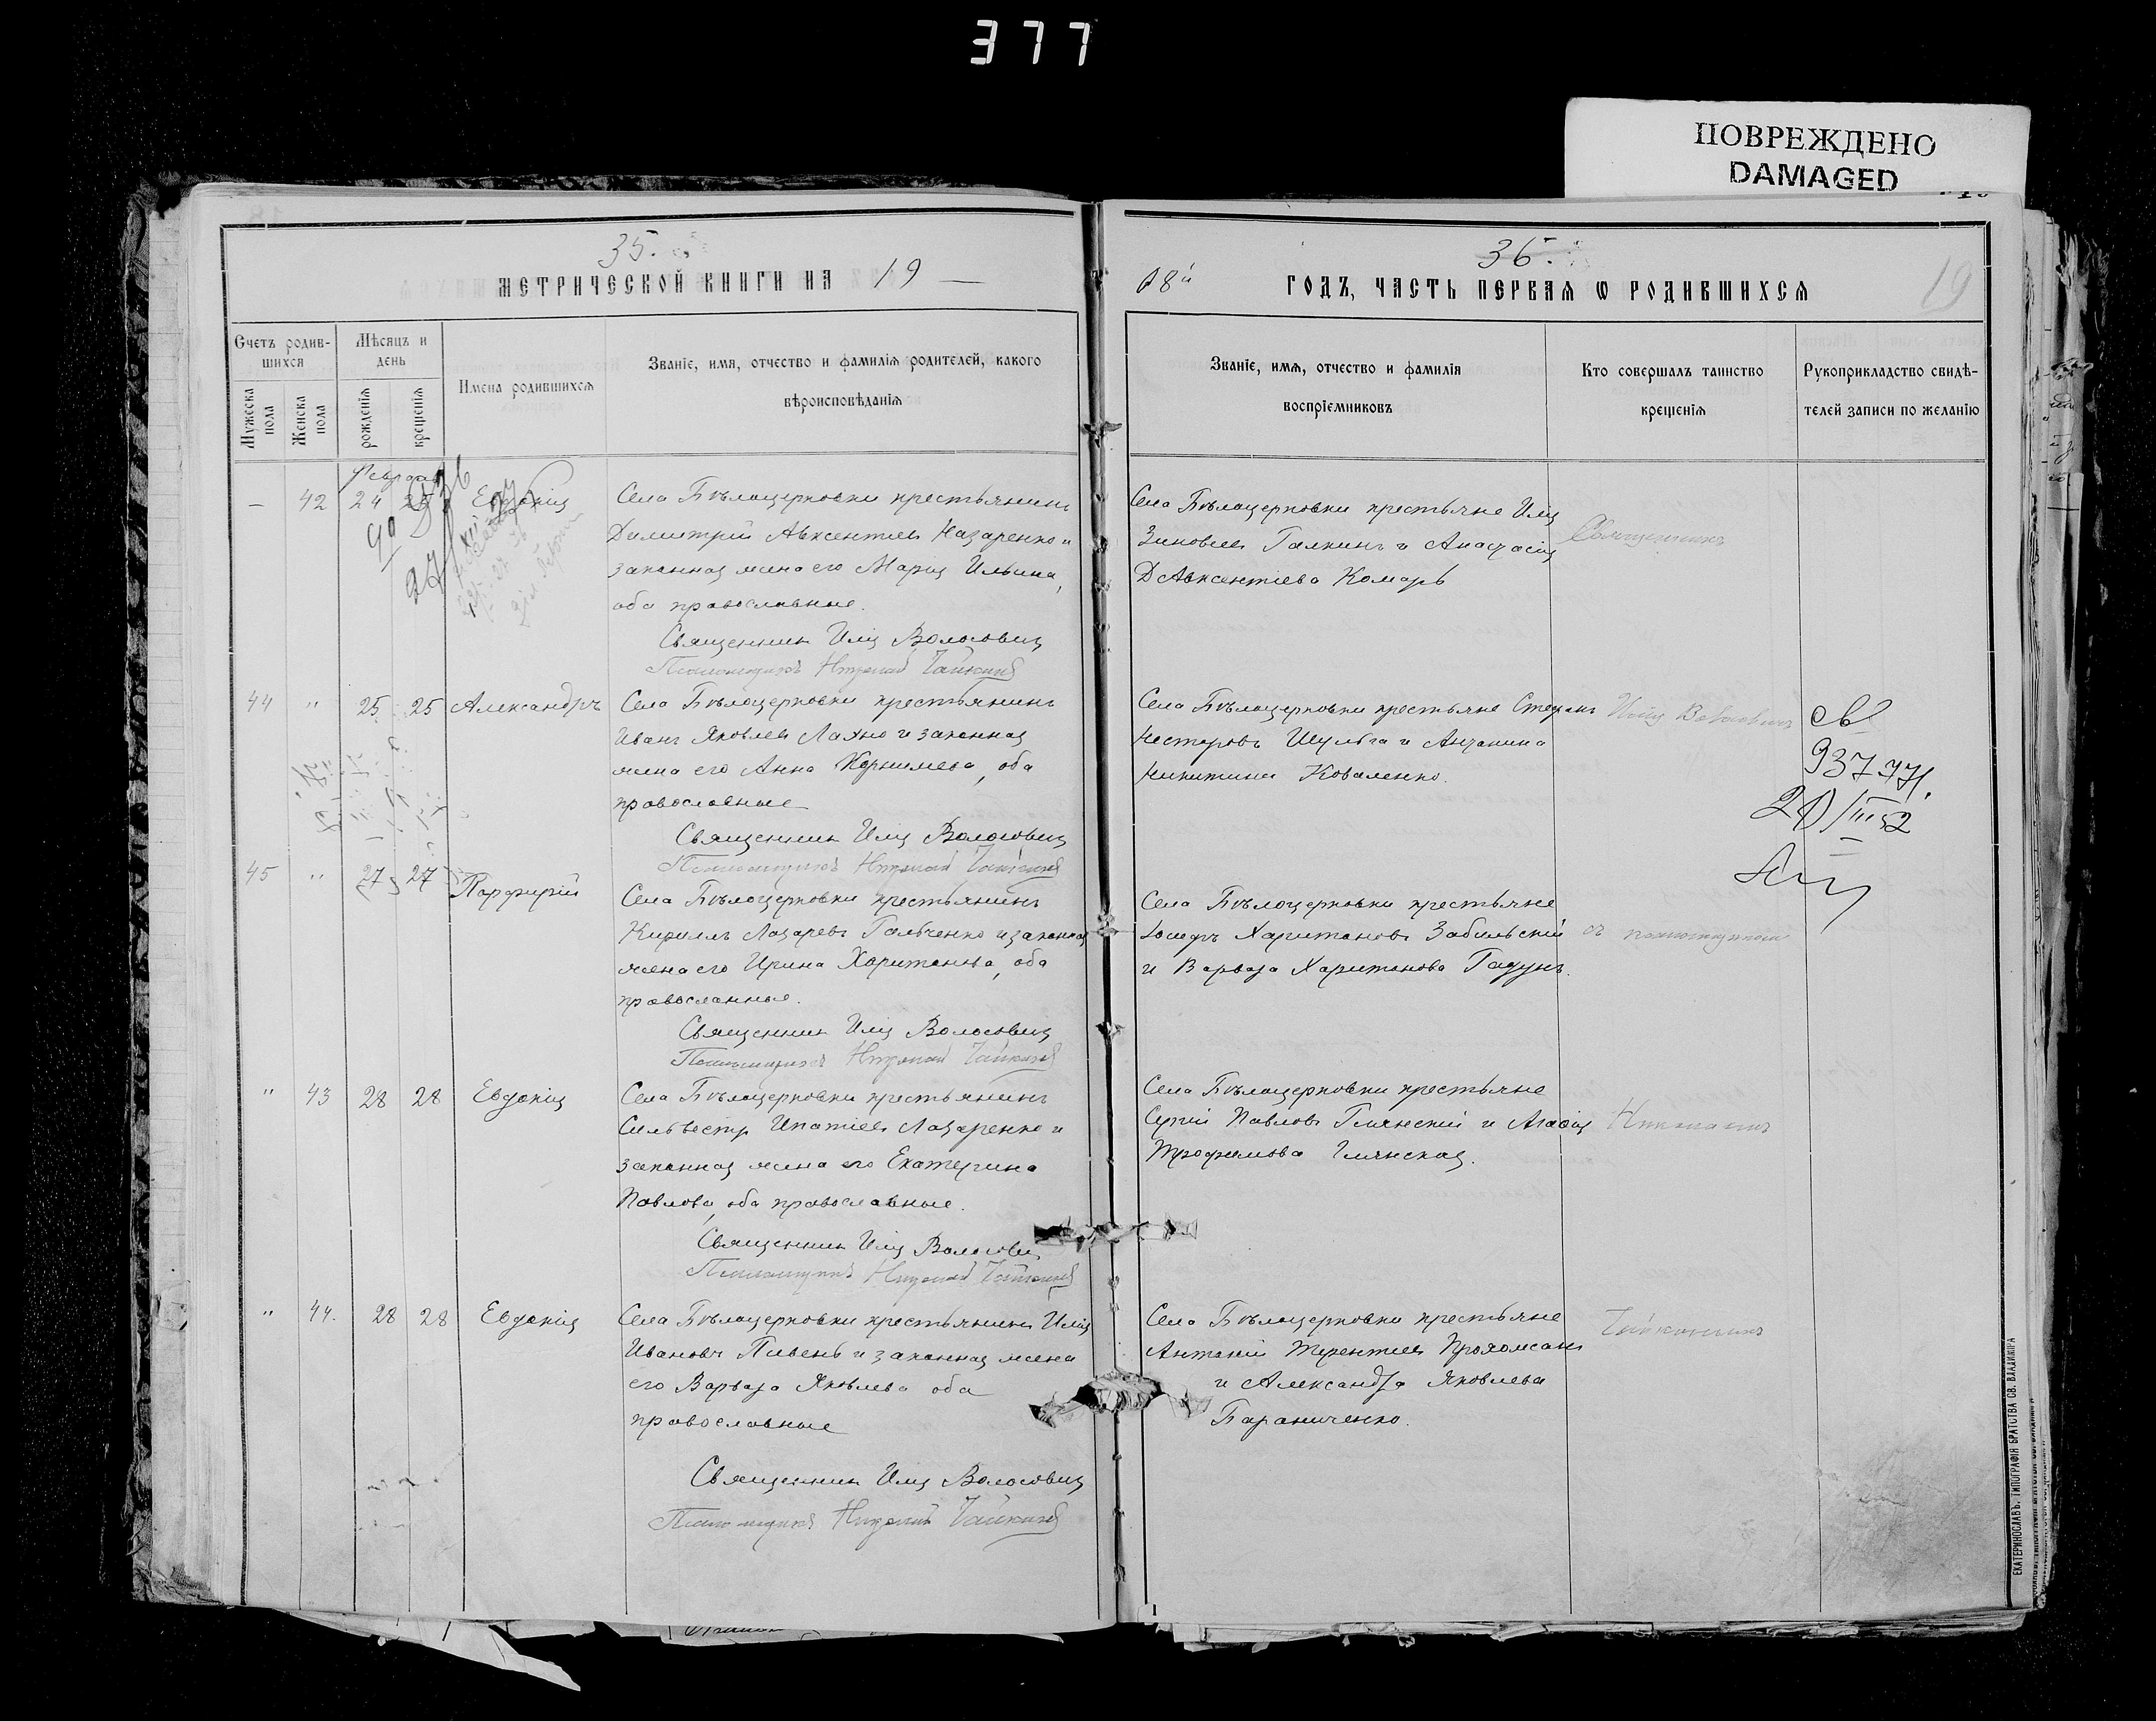 377
ПОВРЕЖДЕНО
DAMAGED
35.
МЕТРИЧЕСКОЙ КНИГИ НА 19 —
Счетъ родив-
шихся
Мѣсяцъ и
день
Имена родившихся
Званіе, имя, отчество и фамилія родителей, какого
вѣроисповѣданія
Мужеска
пола
Женска
пола
рожденія
крещенія
Февраля
— 42 24 25 Евдокія
Села Бѣлоцерковки крестьянинъ
Димитрій Авксентіевъ Назаренко и
законная жена его Марія Ильина,
оба православные.
Священникъ Илія Волосовичъ
Псаломщикъ Николай Чайкинъ
44 " 25 25 Александръ
Села Бѣлоцерковки крестьянинъ
Иванъ Яковлевъ Лахно и законная
жена его Анна Корнилиева, оба
православные
Священникъ Илія Волосовичъ
Псаломщикъ Николай Чайкинъ
45 " 27 27 Порфирій
Села Бѣлоцерковки крестьянинъ
Кириллъ Лазаревъ Гальченко и законная
жена его Ирина Харитонова, оба
православные.
Священникъ Илія Волосовичъ
Псаломщикъ Николай Чайкинъ
" 43 28 28 Евдокія
Села Бѣлоцерковки крестьянинъ
Сильвестръ Ипатіевъ Лазаренко и
законная жена его Екатерина
Павлова, оба православные.
Священникъ Илія Волосовичъ
Псаломщикъ Николай Чайкинъ
" 44. 28 28 Евдокія
Села Бѣлоцерковки крестьянинъ Илія
Ивановъ Пивень и законная жена
его Варвара Яковлева оба
православные
Священникъ Илія Волосовичъ
Псаломщикъ Николай Чайкинъ
36.
08й ГОДЪ, ЧАСТЬ ПЕРВАЯ Ѡ РОДИВШИХСЯ
19
Званіе, имя, отчество и фамилія
воспріемниковъ
Кто совершалъ таинство
крещенія
Рукоприкладство свидѣ-
телей записи по желанію
Села Бѣлоцерковки крестьяне Илія
Зиновіевъ Галкинъ и Анастасія
Авксентіева Комаръ
Священникъ
Села Бѣлоцерковки крестьяне Стефанъ
Несторовъ Шульга и Антонина
Никитина Коваленко.
Илія Волосовичъ
937771
20/III 52
Села Бѣлоцерковки крестьяне
Іосифъ Харитоновъ Забильскій
и Варвара Харитонова Гадунъ.
съ псаломщикомъ
Села Бѣлоцерковки крестьяне
Сергій Павловъ Глянскій и Агафія
Трофимова Глянская.
Николаемъ
Села Бѣлоцерковки крестьяне
Антоній Терентіевъ
и Александра Яковлева
Бараниченко.
Чайкинымъ
ЕКАТЕРИНОСЛАВЪ. ТИПОГРАФІЯ БРАТСТВА СВ. ВЛАДИМІРА